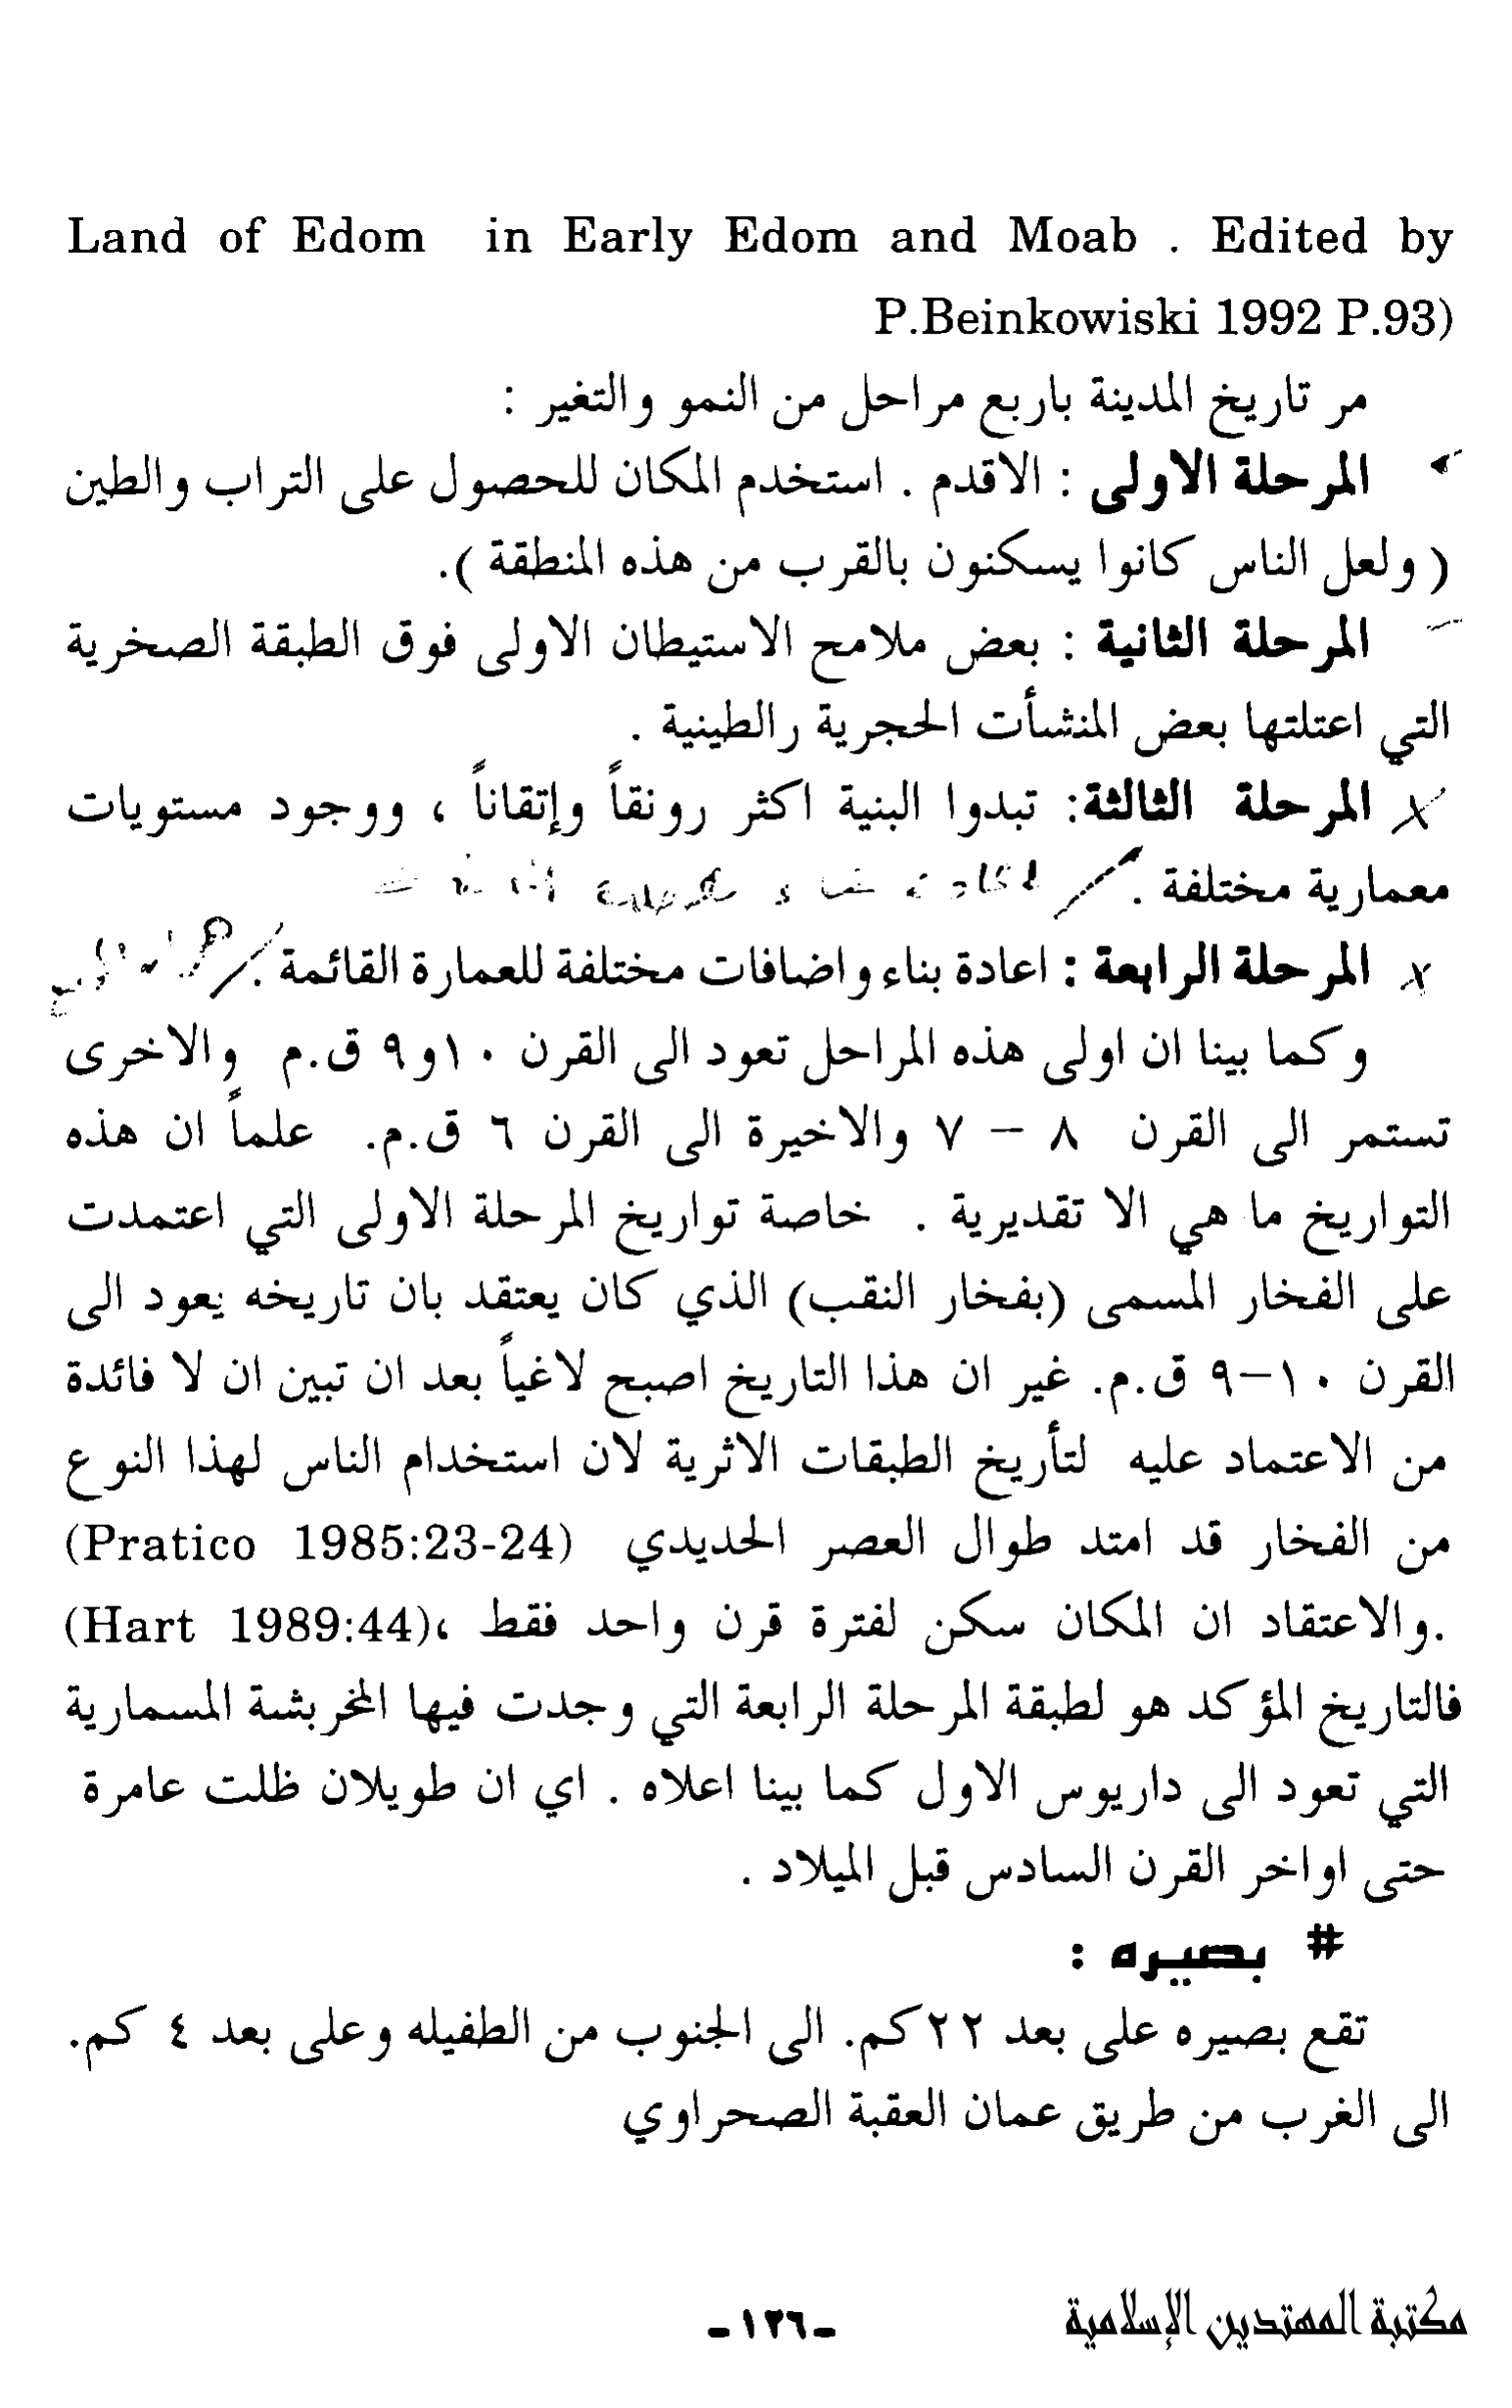 Land of Edom in Early Edom and Moab . Edited by
P.Beinkowiski 1992 P.93)
مر تاريخ المدينة باربع مراحل من النمو والتغير :
المرحلة الاولى : الاقدم . استخدم المكان للحصول على التراب والطين
( ولعل الناس كانوا يسكنون بالقرب من هذه المنطقة ).
المرحلة الثانية : بعض ملامح الاستيطان الاولى فوق الطبقة الصخرية
التي اعتلتها بعض المنشأت الحجرية والطينية .
المرحلة الثالثة: تبدوا البنية اكثر رونقاً وإتقاناً ، ووجود مستويات
معمارية مختلفة .
المرحلة الرابعة : اعادة بناء واضافات مختلفة للعمارة القائمة .
وكما بينا ان اولى هذه المراحل تعود الى القرن ١٠و٩ ق.م والاخرى
تستمر الى القرن ٨ – ٧ والاخيرة الى القرن ٦ ق.م. علماً ان هذه
التواريخ ما هي الا تقديرية . خاصة تواريخ المرحلة الاولى التي اعتمدت
على الفخار المسمى (بفخار النقب) الذي كان يعتقد بان تاريخه يعود الى
القرن ١٠–٩ ق.م. غير ان هذا التاريخ اصبح لاغياً بعد ان تبين ان لا فائدة
من الاعتماد عليه لتأريخ الطبقات الاثرية لان استخدام الناس لهذا النوع
من الفخار قد امتد طوال العصر الحديدي (Pratico 1985:23-24)
.والاعتقاد ان المكان سكن لفترة قرن واحد فقط ،(Hart 1989:44)
فالتاريخ المؤكد هو لطبقة المرحلة الرابعة التي وجدت فيها المخربشة المسمارية
التي تعود الى داريوس الاول كما بينا اعلاه . اي ان طويلان ظلت عامرة
حتى اواخر القرن السادس قبل الميلاد .
# بصيره :
تقع بصيره على بعد ٢٢كم. الى الجنوب من الطفيله وعلى بعد ٤ كم.
الى الغرب من طريق عمان العقبة الصحراوي
-١٢٦-
مكتبة المهتدين الإسلامية